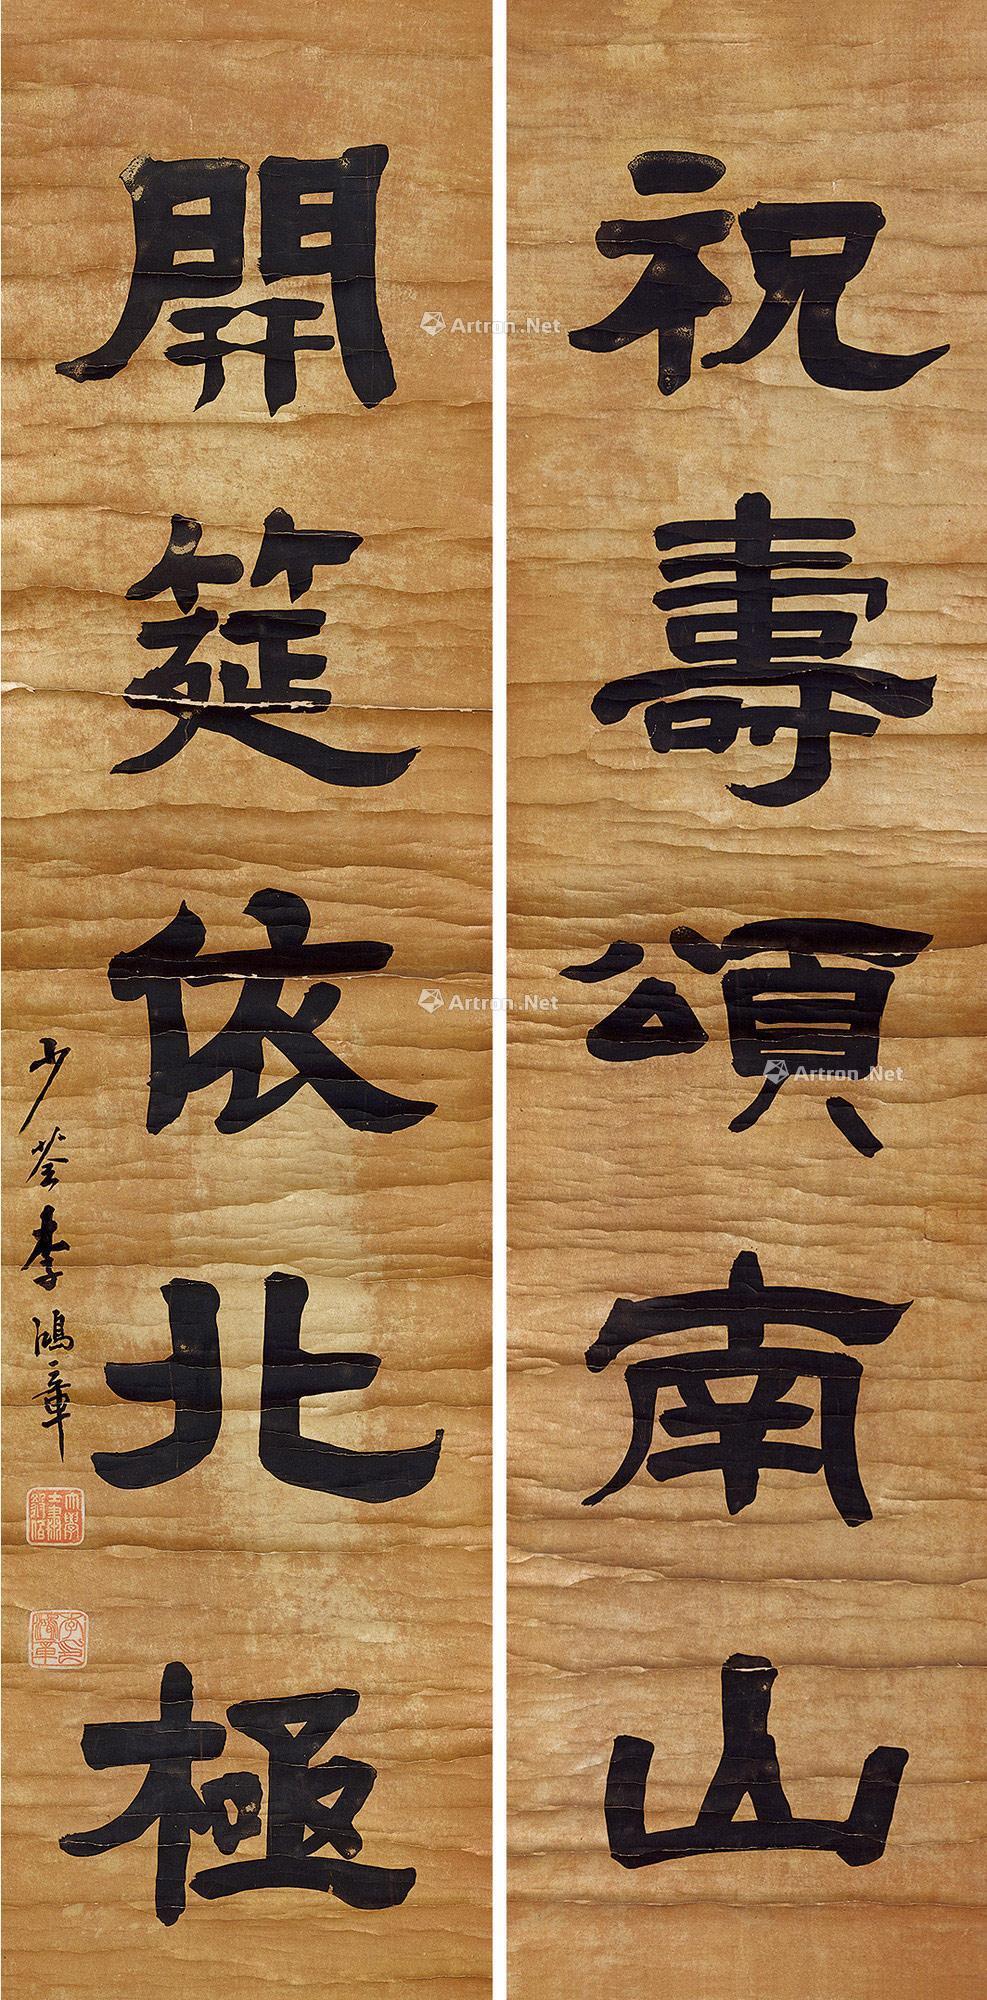 祝壽頌南山
開筵依北極
少荃李鴻章
大學士肅毅伯
李鴻章印
Artron.Net
Artron.Net
Artron.Net